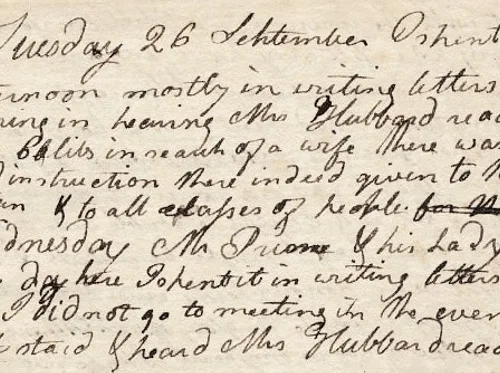 Tuesday 26 September I spent
ernoon mostly in writing letters
ning in hearing Mrs Hubbard read
Celibs in search of a wife there was
d instruction there indeed given to
n & to all classes of people. for
dnesday Mr & his Lady
day here I spent it in writing letters
I did not go to meeting in the even
I staid & heard Mrs Hubbard read